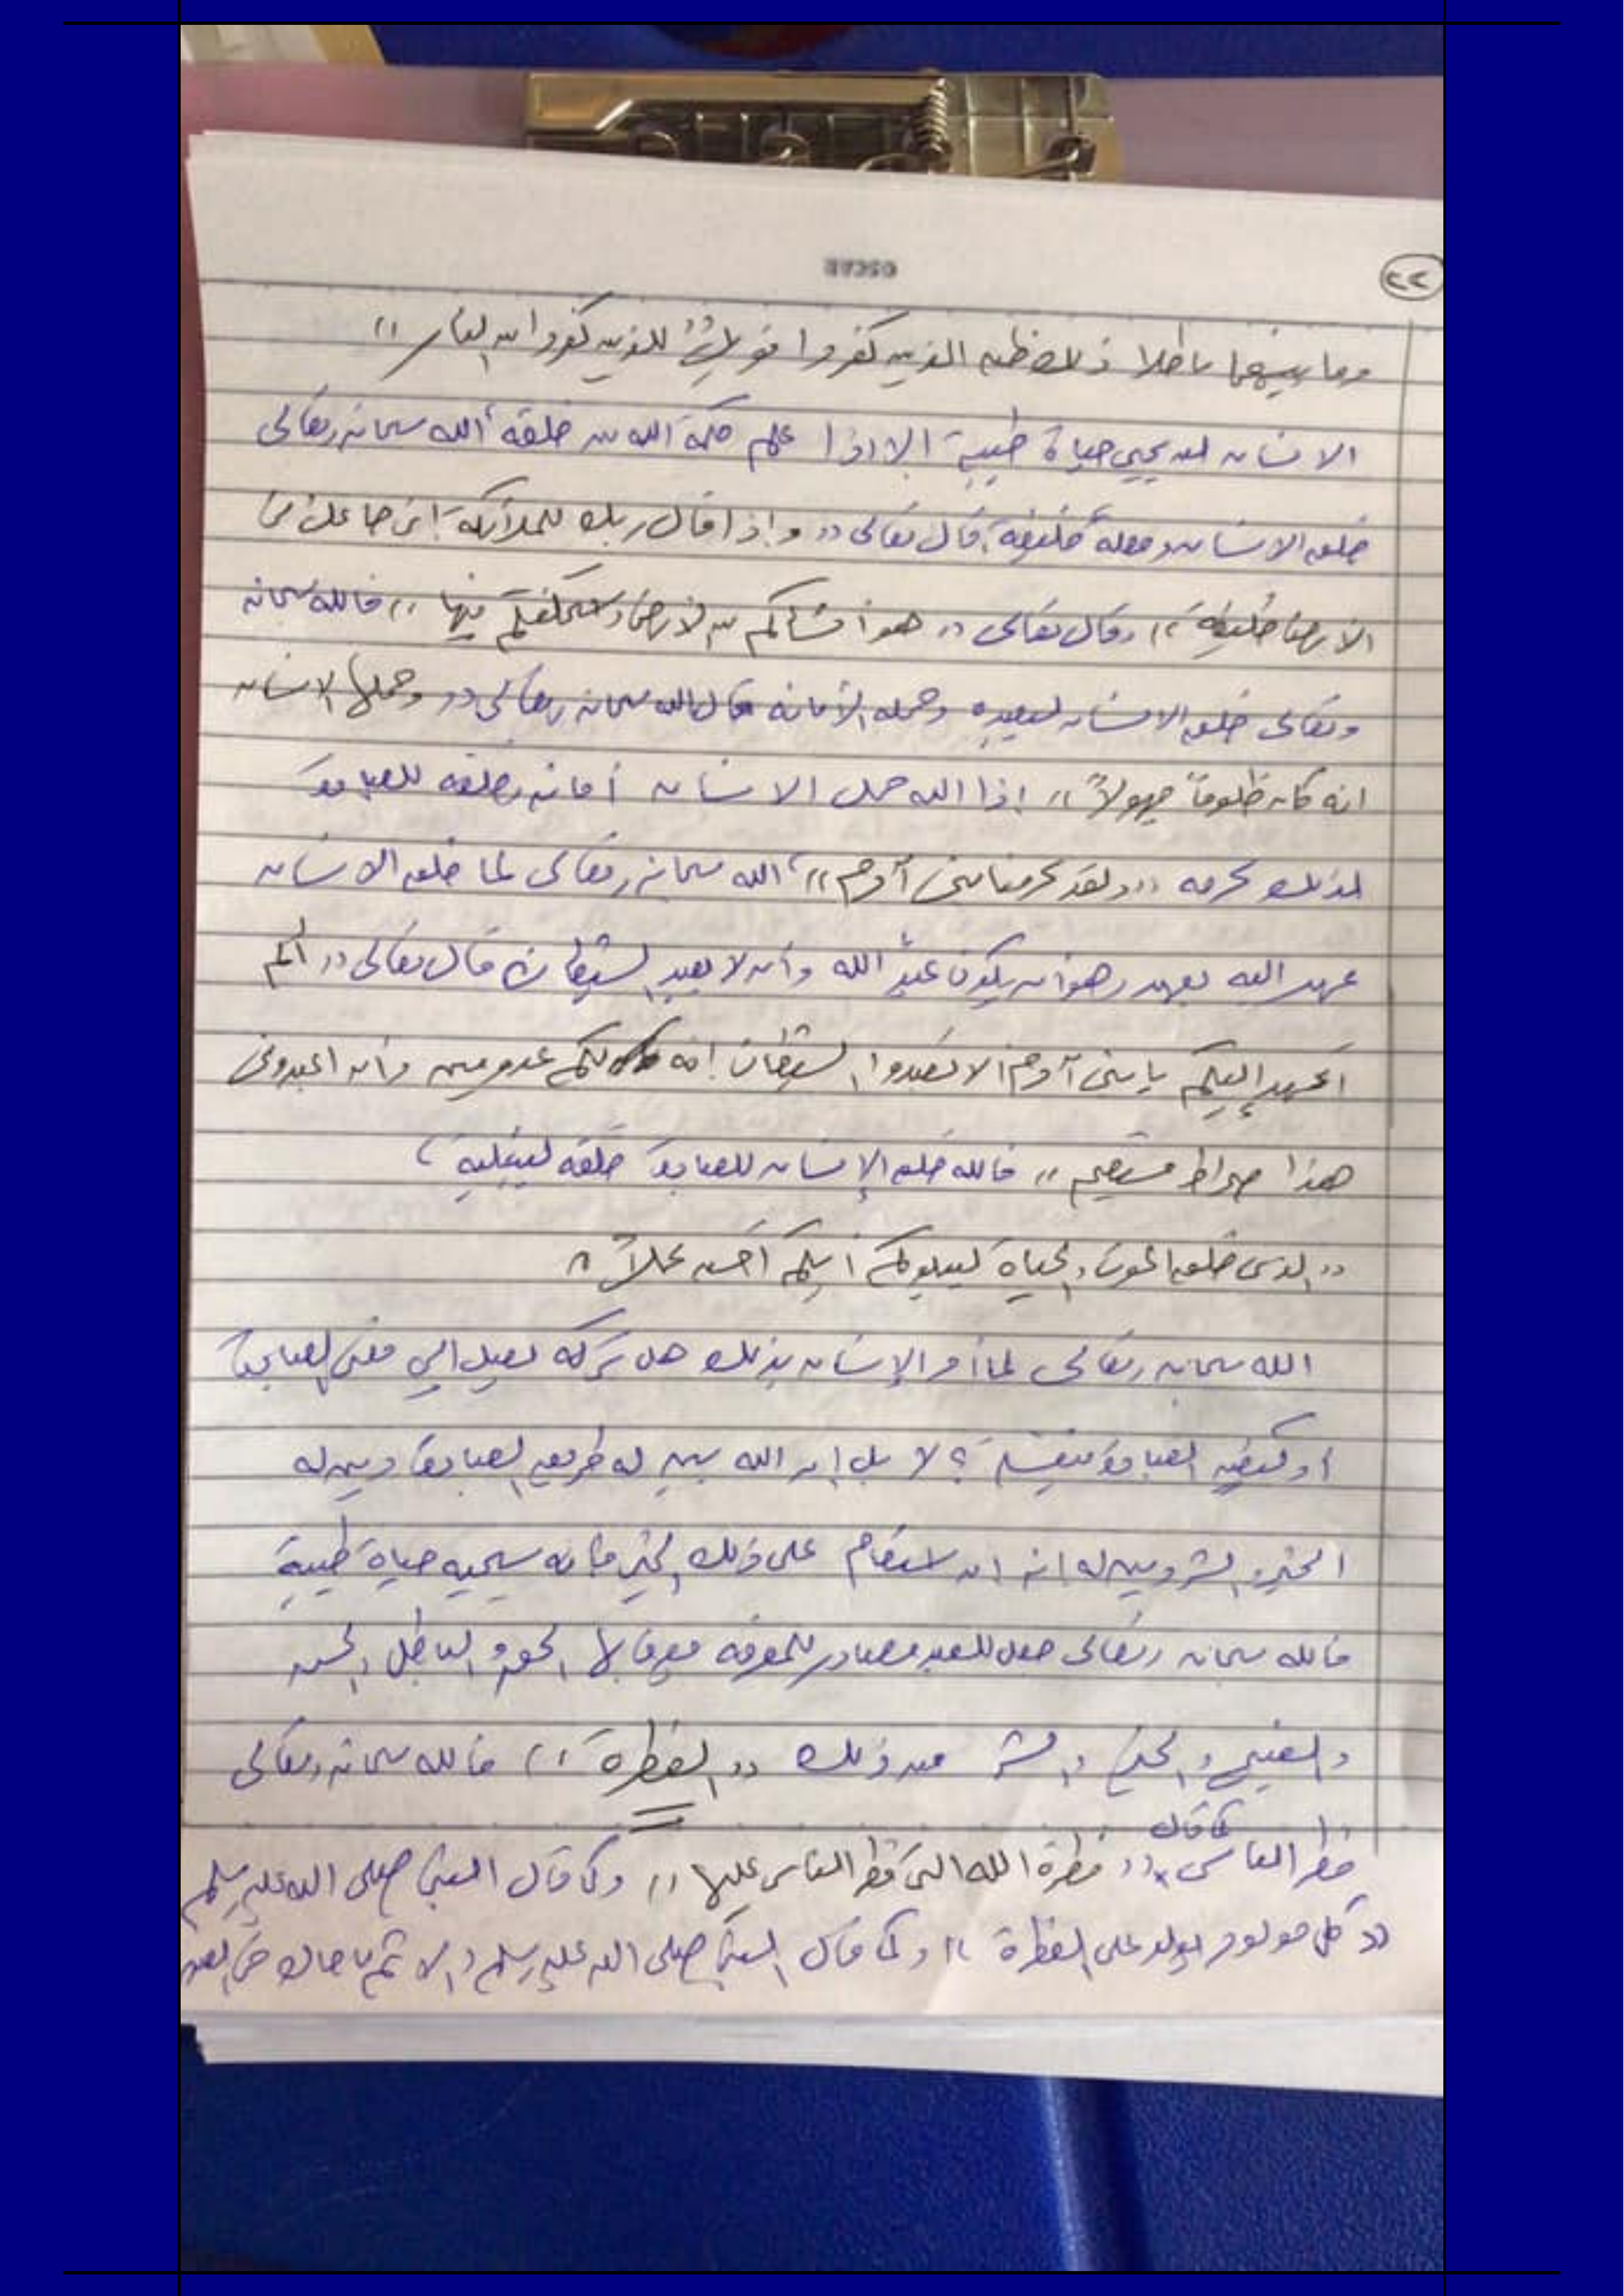 OSCAR
٢٢
وما بينهما باطلا ذلك ظن الذين كفروا فويلٌ للذين كفروا من النار ))
الانسان لن يحيي حياة طيبة الا اذا علم حكمة الله من خلقه، الله سبحانه وتعالى
خلق الانسان وجعله خليفة، قال تعالى (( واذا قال ربك للملائكة إنى جاعل فى
الارض خليفة )) وقال تعالى (( هو أنشأكم من الارض واستخلفكم فيها )) فالله سبحانه
وتعالى خلق الانسان ليعبده وحمله الأمانه قال الله سبحانه وتعالى (( وحملها الانسان
انه كان ظلوماً جهولاً )) إذا الله حمل الانسان أمانه وخلقه للعبادة
لذلك كرمه (( ولقد كرمنا بنى آدم ))، الله سبحانه وتعالى لما خلق الانسان
عهد اليه بعهد وهو أن يكون عبدٌ الله وأن لا يعبد الشيطان قال تعالى (( ألم
أعهد إليكم يا بنى آدم ألا تعبدوا الشيطان إنه لكم عدو مبين وأن اعبدونى
هذا صراط مستقيم )) فالله خلق الإنسان للعبادة خلقه ليبتليه
(( الذى خلق الموت والحياة ليبلوكم أيكم أحسن عملاً ))
الله سبحانه وتعالى لما أمر الإنسان بذلك هل تركه ليصل الى معنى العبادة
أو كيفيه العبادة بنفسه ؟ لا بل إن الله بين له طريق العبادة وبين له
الخير والشر وبين له انه إن استقام على ذلك الخير فانه سيحييه حياة طيبة
فالله سبحانه وتعالى جعل للعبد مصادر للمعرفه يعرف بها الحق والباطل والحسن
والقبيح والخير والشر فمن ذلك (( الفطرة )) فالله سبحانه وتعالى
كما قال
فطر الناس (( فطرة الله التى فطر الناس عليها )) وكما قال النبى صلى الله عليه وسلم
(( كل مولود يولد على الفطرة )) وكما قال النبى صلى الله عليه وسلم (( الاثم ما حاك فى